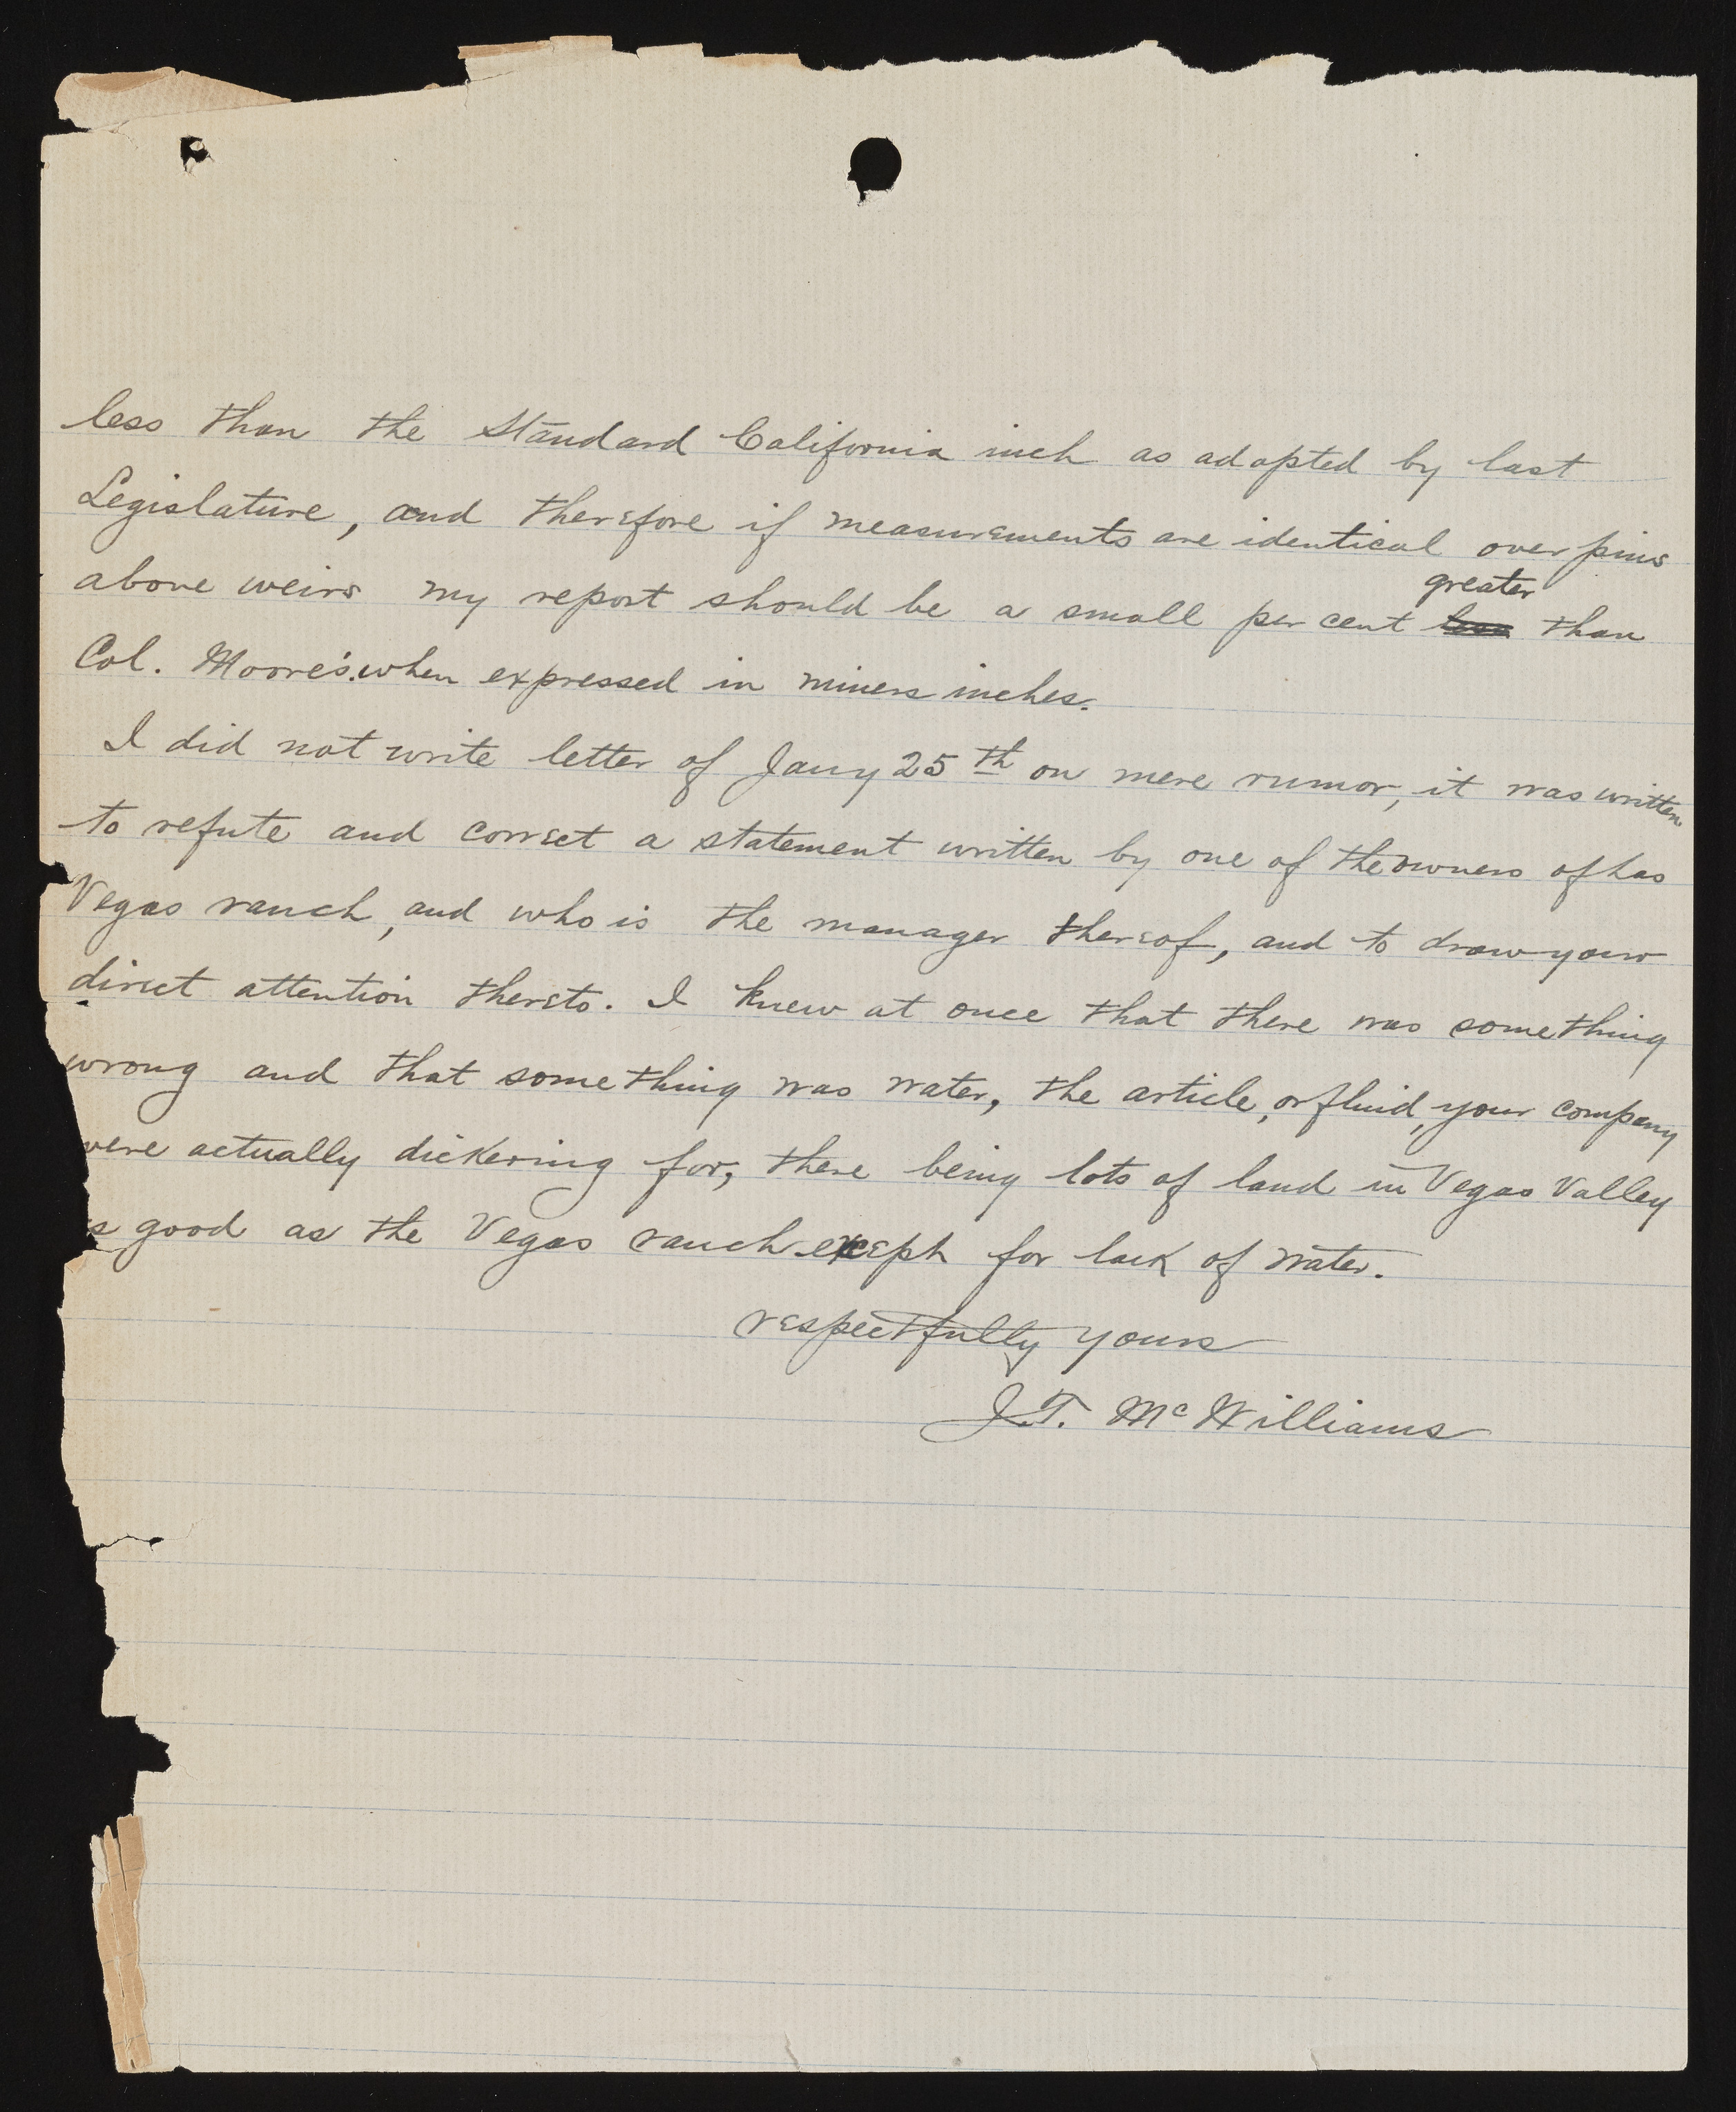 less than the Standard California inch as adopted by last
Legislature, and therefore if measurements are identical over pins
above weirs my report should be a small per cent less greater than
Col. Moore's. when expressed in miners inches.
I did not write letter of Jany 25th on mere rumor, it was written
to refute and correct a statement written by one of the owners of Las
Vegas ranch, and who is the manager thereof, and to draw your
direct attention thereto. I knew at once that there was something
wrong and that something was water, the article, or fluid, your company
were actually dickering for, there being lots of land in Vegas Valley
s good as the Vegas ranch except for lack of water.
respectfully yours
J.T. McWilliams